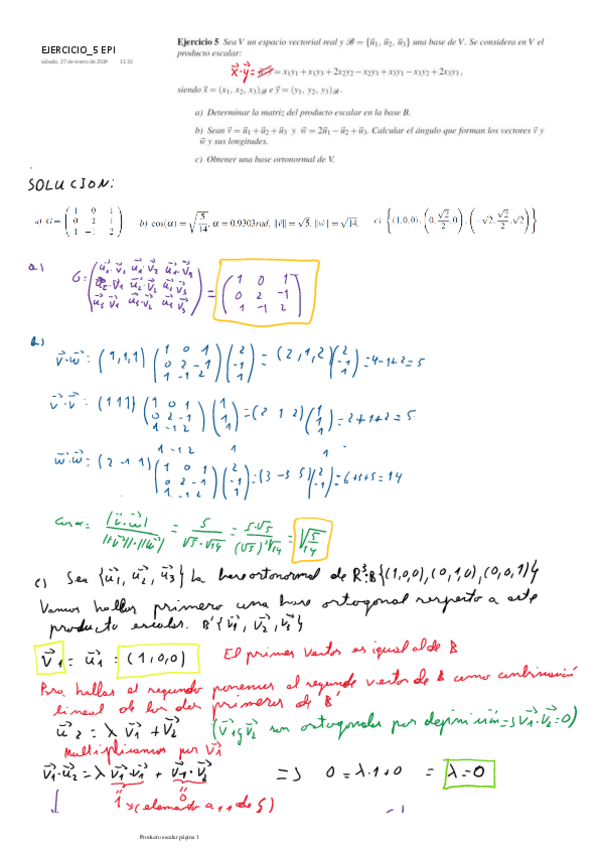 EJERCICIO_5 EPI
sábado, 27 de enero de 2018 11:32
Ejercicio 5 Sea V un espacio vectorial real y ℬ = {u⃗₁, u⃗₂, u⃗₃} una base de V. Se considera en V el
producto escalar:
x⃗·y⃗ = x₁y₁ + x₁y₃ + 2x₂y₂ − x₂y₃ + x₃y₁ − x₃y₂ + 2x₃y₃,
siendo x⃗ = (x₁, x₂, x₃)ℬ e y⃗ = (y₁, y₂, y₃)ℬ.
a) Determinar la matriz del producto escalar en la base B.
b) Sean v⃗ = u⃗₁ + u⃗₂ + u⃗₃ y w⃗ = 2u⃗₁ − u⃗₂ + u⃗₃. Calcular el ángulo que forman los vectores v⃗ y
w⃗ y sus longitudes.
c) Obtener una base ortonormal de V.
SOLUCION:
a) G = (1 0 1 / 0 2 -1 / 1 -1 2) b) cos(α) = √(5/14), α = 0.9303rad, ||v⃗|| = √5, ||w⃗|| = √14. c) {(1,0,0), (0, √2/2, 0), (-√2, √2/2, √2)}
a)
G = (u⃗₁·v⃗₁ u⃗₁·v⃗₂ u⃗₁·v⃗₃ / u⃗₂·v⃗₁ u⃗₂·v⃗₂ u⃗₂·v⃗₃ / u⃗₃·v⃗₁ u⃗₃·v⃗₂ u⃗₃·v⃗₃) = (1 0 1 / 0 2 -1 / 1 -1 2)
b)
v⃗·w⃗ = (1,1,1) (1 0 1 / 0 2 -1 / 1 -1 2) (2 / -1 / 1) = (2,1,2) (2 / -1 / 1) = 4-1+2 = 5
v⃗·v⃗ = (1 1 1) (1 0 1 / 0 2 -1 / 1 -1 2) (1 / 1 / 1) = (2 1 2) (1 / 1 / 1) = 2+1+2 = 5
1 -1 2 1 1
w⃗·w⃗ = (2 -1 1) (1 0 1 / 0 2 -1 / 1 -1 2) (2 / -1 / 1) = (3 -3 5) (2 / -1 / 1) = 6+3+5 = 14
cos α = |v⃗·w⃗| / ||v⃗||·||w⃗|| = 5 / √5·√14 = 5·√5 / (√5)²√14 = √(5/14)
c) Sea {u⃗₁, u⃗₂, u⃗₃} la base ortonormal de R³: B{(1,0,0),(0,1,0),(0,0,1)}
Vamos hallar primero una base ortogonal respecto a este
producto escalar. B'{v⃗₁, v⃗₂, v⃗₃}
v⃗₁ = u⃗₁ = (1,0,0) El primer vector es igual al de B
Para hallar el segundo ponemos el segundo vector de B como combinación
lineal de los dos primeros de B'
u⃗₂ = λ v⃗₁ + v⃗₂ (v⃗₁ y v⃗₂ son ortogonales por definición => v⃗₁·v⃗₂ = 0)
Multiplicamos por v⃗₁
v⃗₁·u⃗₂ = λ v⃗₁·v⃗₁ + v⃗₁·v⃗₂ => 0 = λ·1+0 = λ=0
1 0
(elemento a₁,₁ de G)
Producto escalar página 1